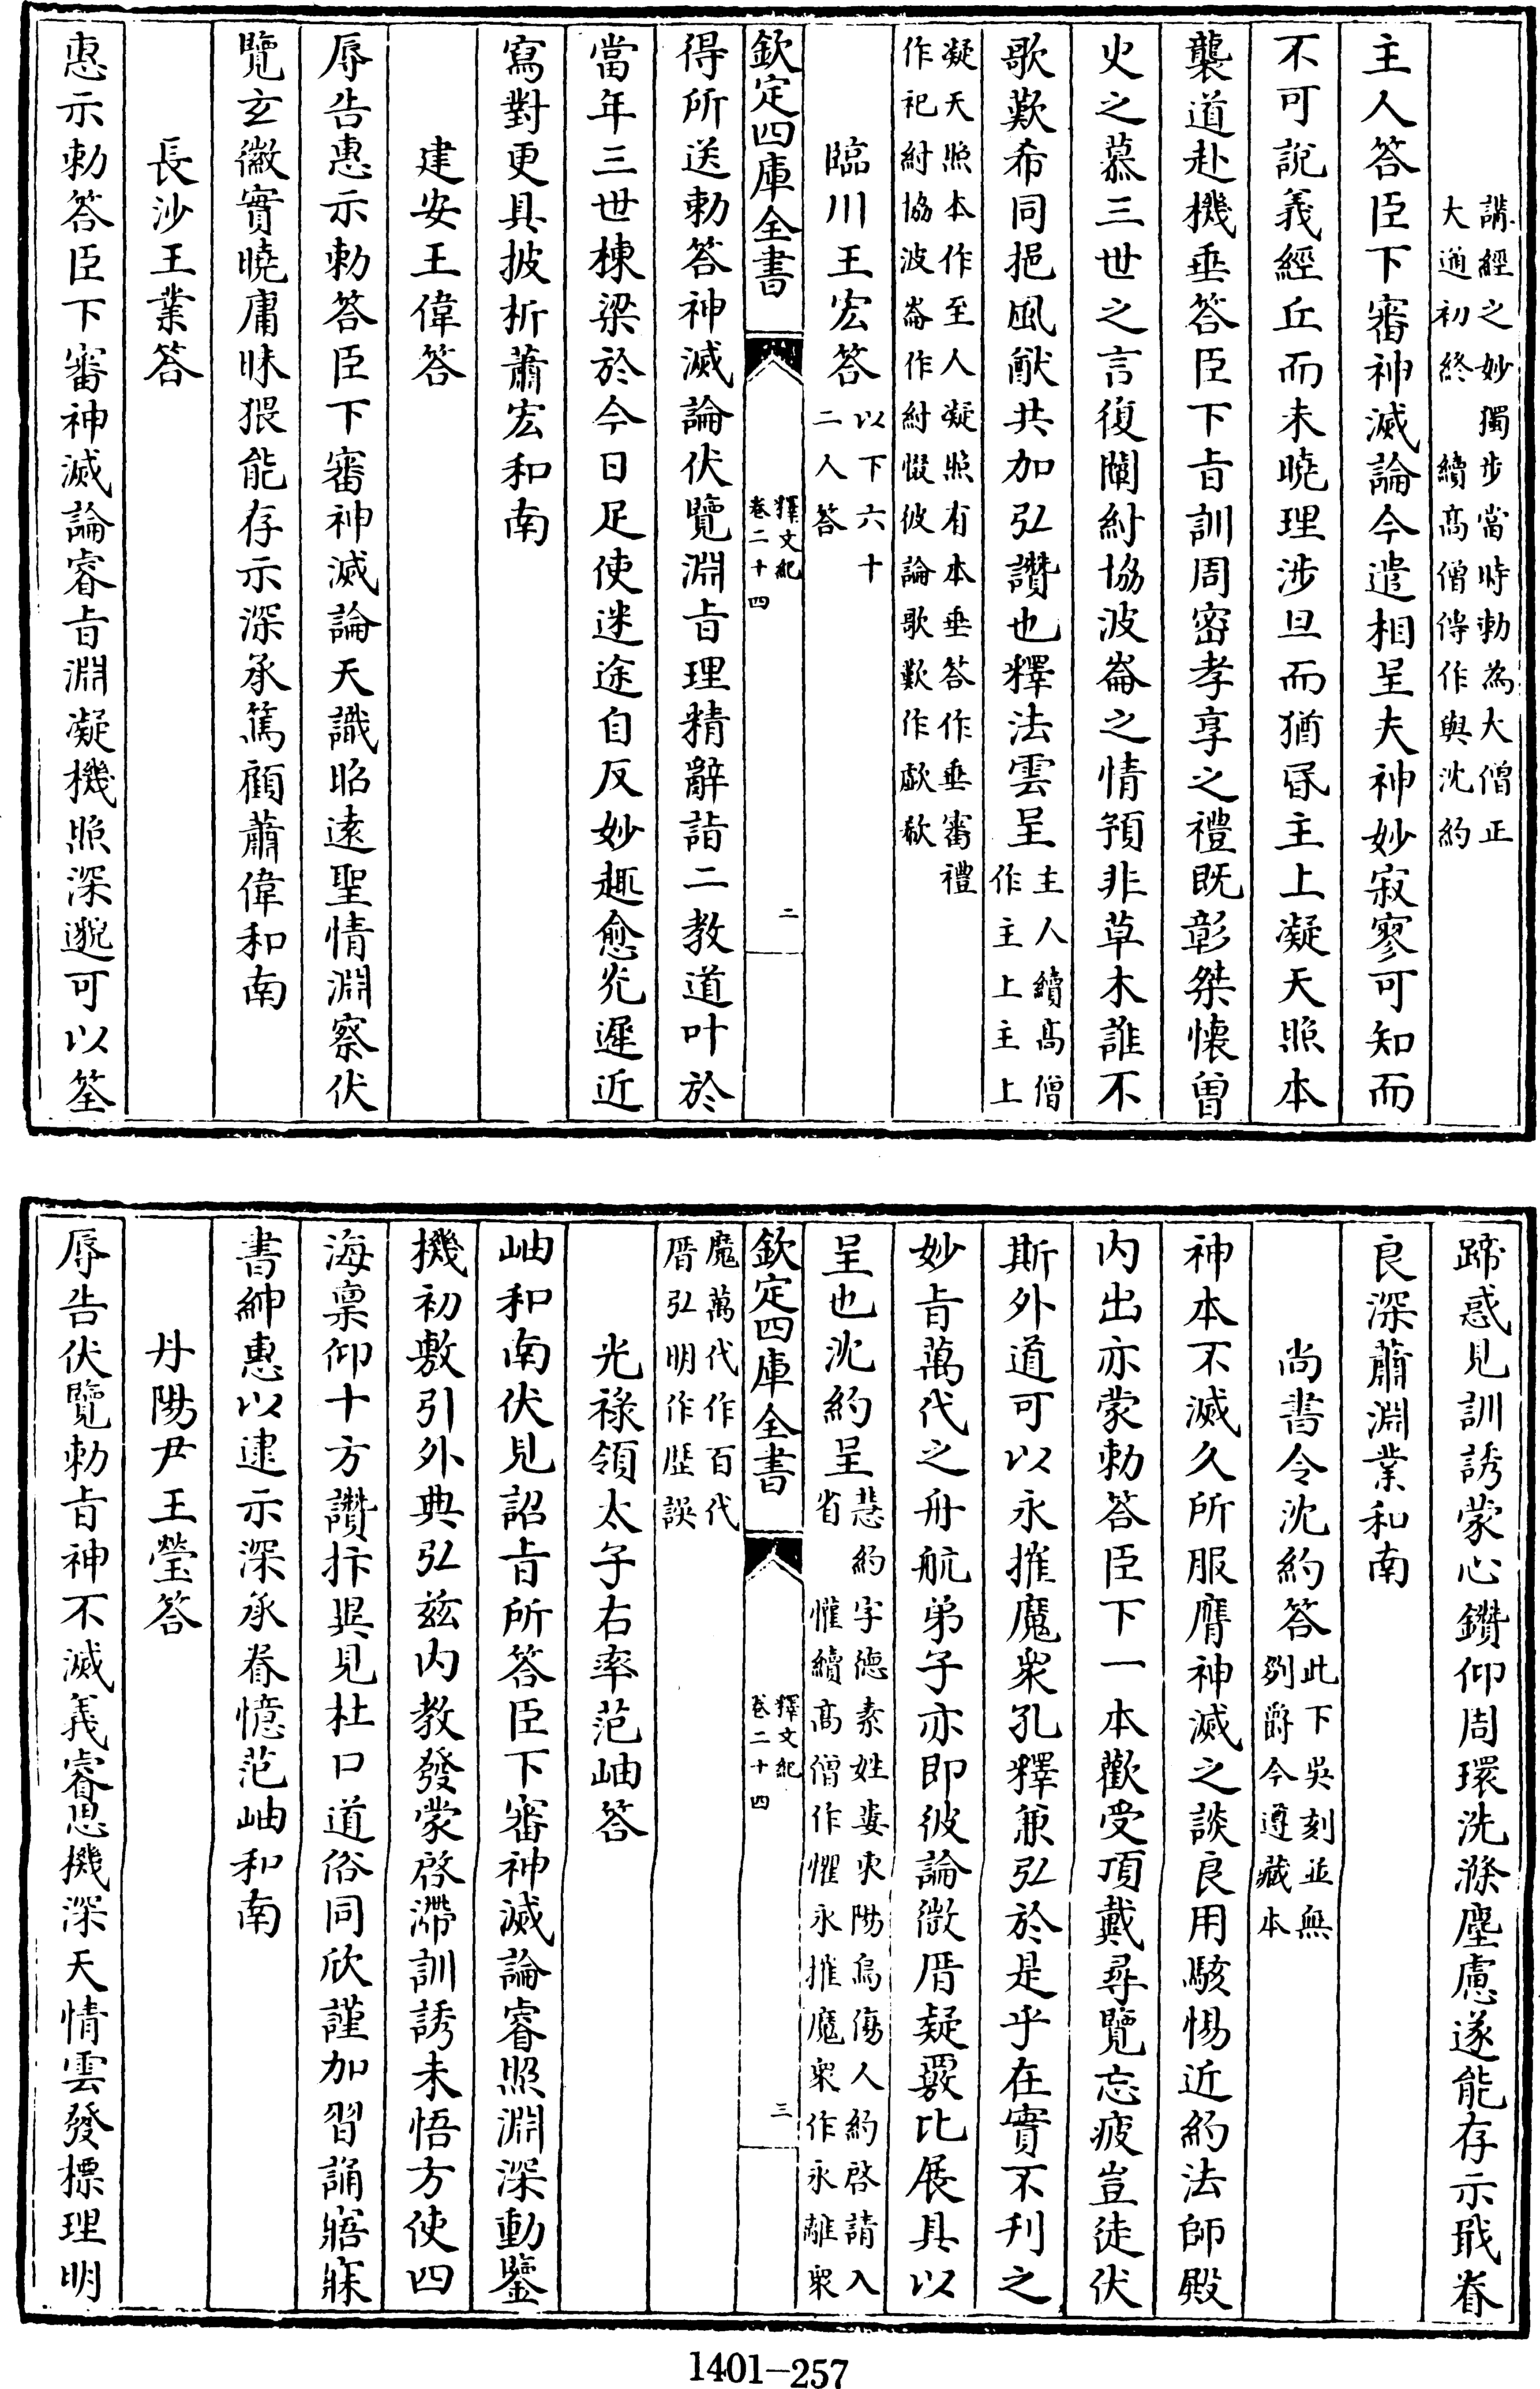 講經之妙獨步當時勅為大僧正
大通初終　續高僧傳作與沈約
主人答臣下審神滅論今遣相呈夫神妙寂寥可知而
不可說義經丘而未曉理涉旦而猶昬主上凝天照本
襲道赴機垂答臣下旨訓周密孝享之禮既彰桀懷曾
史之慕三世之言復闡紂協波崙之情預非草木誰不
歌歎希同挹風猷共加弘讚也釋法雲呈主人續高僧作主上主上
凝天照本作至人凝照有本垂答作垂審禮
作祀紂協波崙作紂惙彼論歌歎作歔欷
臨川王宏答以下六十二人答
欽定四庫全書　釋文紀卷二十四　二
得所送勅答神滅論伏覽淵旨理精辭詣二教道叶於
當年三世棟梁於今日足使迷途自反妙趣愈光遲近
寫對更具披析蕭宏和南
建安王偉答
辱告惠示勅答臣下審神滅論天識昭遠聖情淵察伏
覽玄徽實曉庸昧猥能存示深承篤顧蕭偉和南
長沙王業答
惠示勅答臣下審神滅論睿旨淵凝機照深邈可以筌
蹄惑見訓誘蒙心鑽仰周環洗滌塵慮遂能存示戢眷
良深蕭淵業和南
尚書令沈約答此下吳刻並無列爵今遵藏本
神本不滅久所服膺神滅之談良用駭惕近約法師殿
內出亦蒙勅答臣下一本歡受頂戴尋覽忘疲豈徒伏
斯外道可以永摧魔衆孔釋兼弘於是乎在實不刊之
妙旨萬代之舟航弟子亦即彼論微厝疑覈比展具以
呈也沈約呈慧約字德素姓婁東陽烏傷人約啓請入省　懽續高僧作懼永摧魔衆作永離衆
欽定四庫全書　釋文紀卷二十四　三
魔萬代作百代
厝弘明作歷誤
光祿領太子右率范岫答
岫和南伏見詔旨所答臣下審神滅論睿照淵深動鑒
機初敷引外典弘兹内教發蒙啓滯訓誘未悟方使四
海禀仰十方讚抃異見杜口道俗同欣謹加習誦寤寐
書紳惠以逮示深承眷憶范岫和南
丹陽尹王瑩答
辱告伏覽勅旨神不滅義睿思機深天情雲發標理明
1401-257